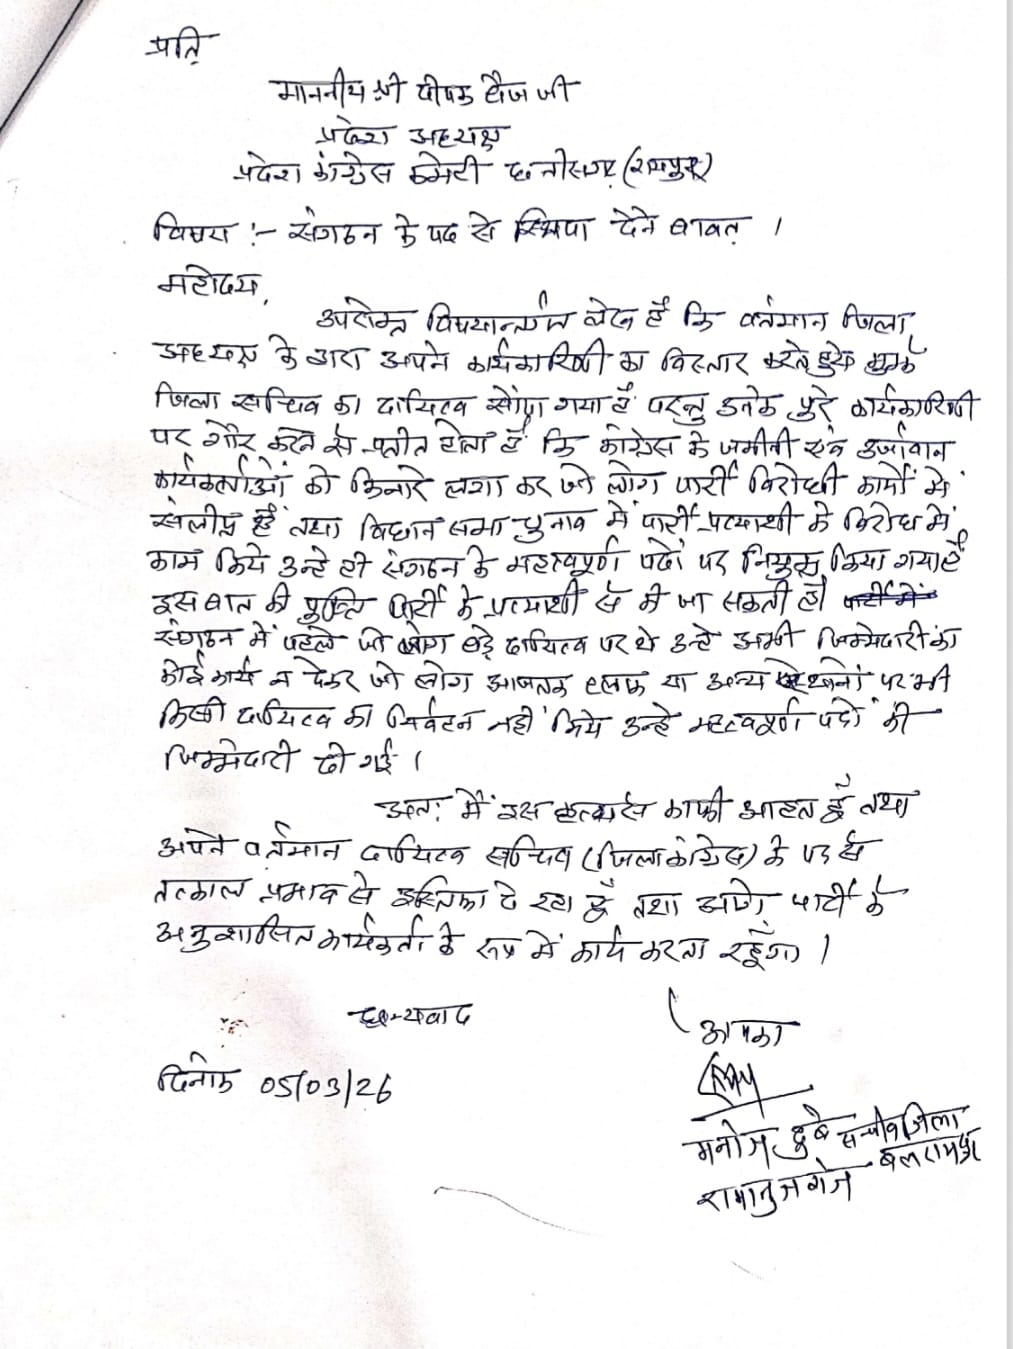 प्रति,
माननीय श्री दीपक बैज जी
प्रदेश अध्यक्ष
प्रदेश कांग्रेस कमेटी छत्तीसगढ़ (रायपुर)
विषय :- संगठन के पद से स्तिफा देने बावत् ।
महोदय,
उपरोक्त विषयान्तर्गत लेख है कि वर्तमान जिला
अध्यक्ष के द्वारा अपने कार्यकारिणी का विस्तार करते हुये मुझे
जिला सचिव का दायित्व सौंपा गया है परन्तु उनके पुरे कार्यकारिणी
पर गौर करने से प्रतीत होता है कि कांग्रेस के जमीनी एवं उर्जावान
कार्यकर्ताओं को किनारे लगा कर जो लोग पार्टी विरोधी कार्यों में
संलीप्त हैं तथा विधान सभा चुनाव में पार्टी प्रत्याशी के विरोध में
काम किये उन्हे ही संगठन के महत्वपूर्ण पदों पर नियुक्त किया गया है
इस बात की पुष्टि पार्टी के प्रत्याशी से की जा सकती है।
संगठन में पहले जो लोग बड़े दायित्व पर थे उन्हे अभी जिम्मेदारी का
कोई कार्य न देकर जो लोग आजतक ब्लाक या अन्य पर भी
किसी दायित्व का निर्वहन नहीं किये उन्हे महत्वपूर्ण पदों की
जिम्मेदारी दी गई ।
अतः मैं इस से काफी आहत हूँ तथा
अपने वर्तमान दायित्व सचिव (जिला कांग्रेस) के पद से
तत्काल प्रभाव से इस्तिफा दे रहा हूँ तथा आगे पार्टी के
अनुशासित कार्यकर्ता के रूप में कार्य करता रहूँगा ।
धन्यवाद
आपका
दिनांक 05/03/26
मनोज दुबे सचीव जिला
बलरामपुर
रामानुजगंज